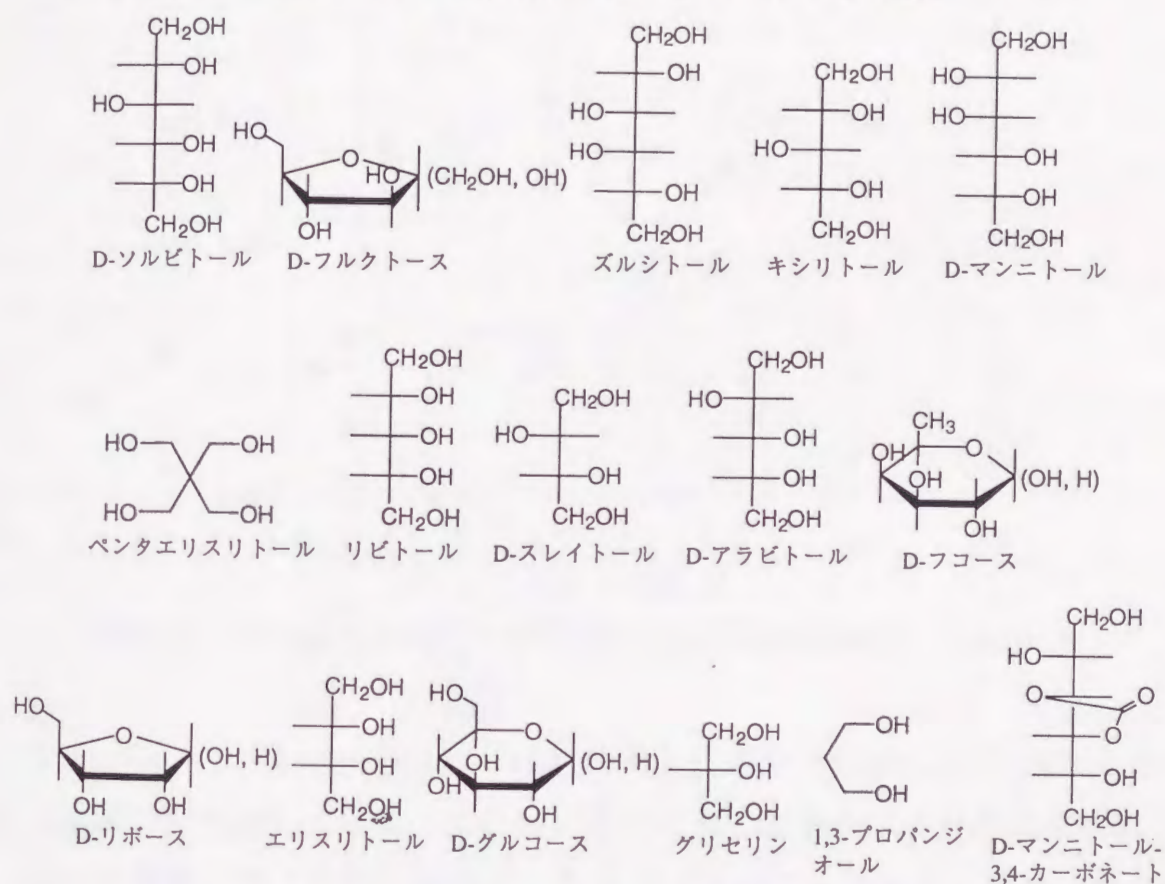 CH₂OH
OH
HO
OH
OH
CH₂OH
D-ソルビトール
HO
O
HO
(CH₂OH, OH)
OH
D-フルクトース
CH₂OH
OH
HO
HO
OH
CH₂OH
ズルシトール
CH₂OH
OH
HO
OH
CH₂OH
キシリトール
CH₂OH
HO
HO
OH
OH
CH₂OH
D-マンニトール
HO
OH
HO
OH
ペンタエリスリトール
CH₂OH
OH
OH
OH
CH₂OH
リビトール
CH₂OH
HO
OH
CH₂OH
D-スレイトール
CH₂OH
HO
OH
OH
CH₂OH
D-アラビトール
CH₃
OH
O
OH
(OH, H)
OH
D-フコース
HO
O
(OH, H)
OH
OH
D-リボース
CH₂OH
OH
OH
CH₂OH
エリスリトール
HO
O
OH
(OH, H)
OH
OH
D-グルコース
CH₂OH
OH
CH₂OH
グリセリン
OH
OH
1,3-プロパンジ
オール
CH₂OH
HO
O
O
O
OH
CH₂OH
D-マンニトール-
3,4-カーボネート